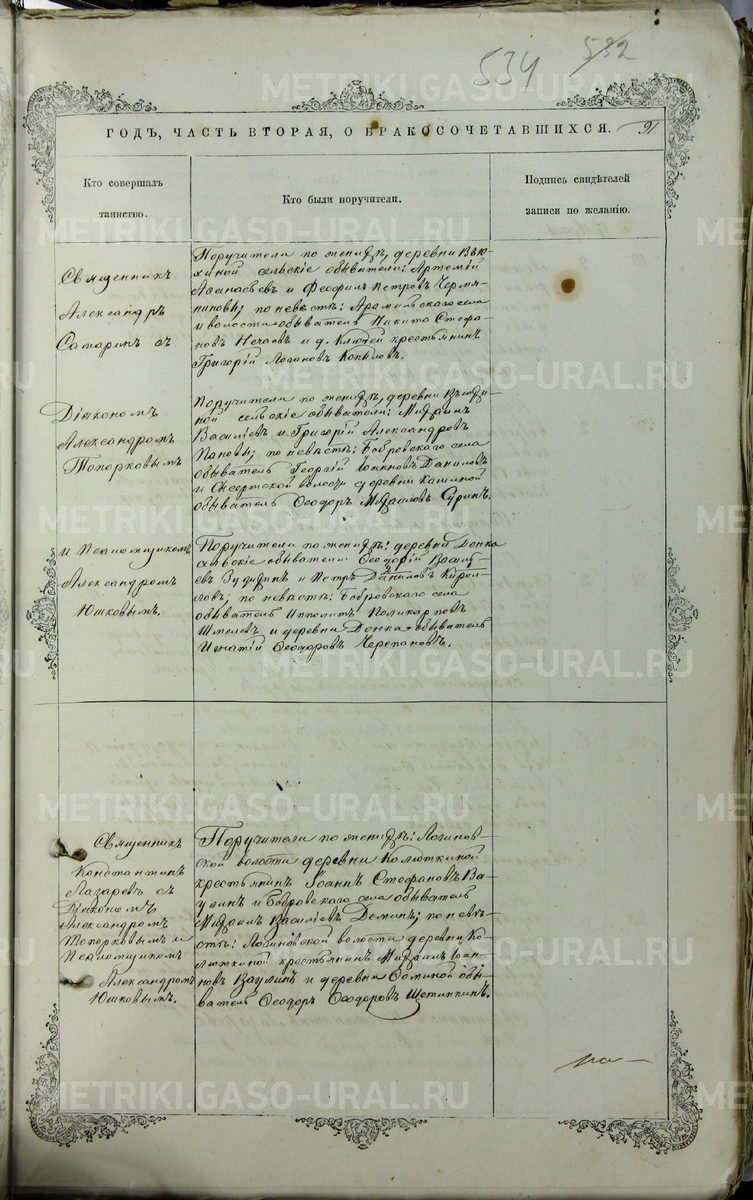 534 532
ГОДЪ, ЧАСТЬ ВТОРАЯ, О БРАКОСОЧЕТАВШИХСЯ. 91
Кто совершалъ
таинство.
Кто были поручители.
Подпись свидѣтелей
записи по желанію.
Священникъ
Александръ
Самаринъ съ
Поручители по женихѣ, деревни Вью-
хиной сельскіе обыватели: Артемій
Аѳанасьевъ и Ѳеофилъ Петровъ Чермя-
ниновы; по невѣстѣ: Арамильскаго села
и волости обыватель Никита Стефа-
новъ Нечаевъ и д. Ключей крестьянинъ
Григорій Логиновъ Копыловъ.
Діакономъ
Александромъ
Топорковымъ
Поручители по женихѣ, деревни
ной сельскіе обыватели: Михаилъ
Васильевъ и Григорій Александровъ
Поповы; по невѣстѣ: Бобровскаго села
обыватель Георгій Іоанновъ Даниловъ
и Сысертской волости деревни Кашиной
обыватель Ѳеодоръ Михаиловъ Суринъ.
и Псаломщикомъ
Александромъ
Юшковымъ.
Поручители по женихѣ: деревни Донка
сельскіе обыватели Ѳеодорій Василь-
евъ и Петръ Даниловъ Кирил-
ловъ; по невѣстѣ: Бобровскаго села
обыватель Ипполитъ Поликарповъ
Шмелевъ и деревни Донка обыватель
Игнатій Ѳеодоровъ Черепановъ.
Священникъ
Константинъ
Лазаревъ съ
Діакономъ
Александромъ
Топорковымъ и
Псаломщикомъ
Александромъ
Юшковымъ.
Поручители по женихѣ: Логинов-
ской волости деревни Колюткиной
крестьянинъ Іоаннъ Стефановъ Ва-
улинъ и Бобровскаго села обыватель
Михаилъ Васильевъ Деминъ; по невѣ-
стѣ: Логиновской волости деревни Ко-
люткиной крестьянинъ Михаилъ Іоан-
новъ Ваулинъ и деревни Ѳоминой обы-
ватель Ѳеодоръ Ѳеодоровъ Щетинкинъ.
METRIKI.GASO-URAL.RU